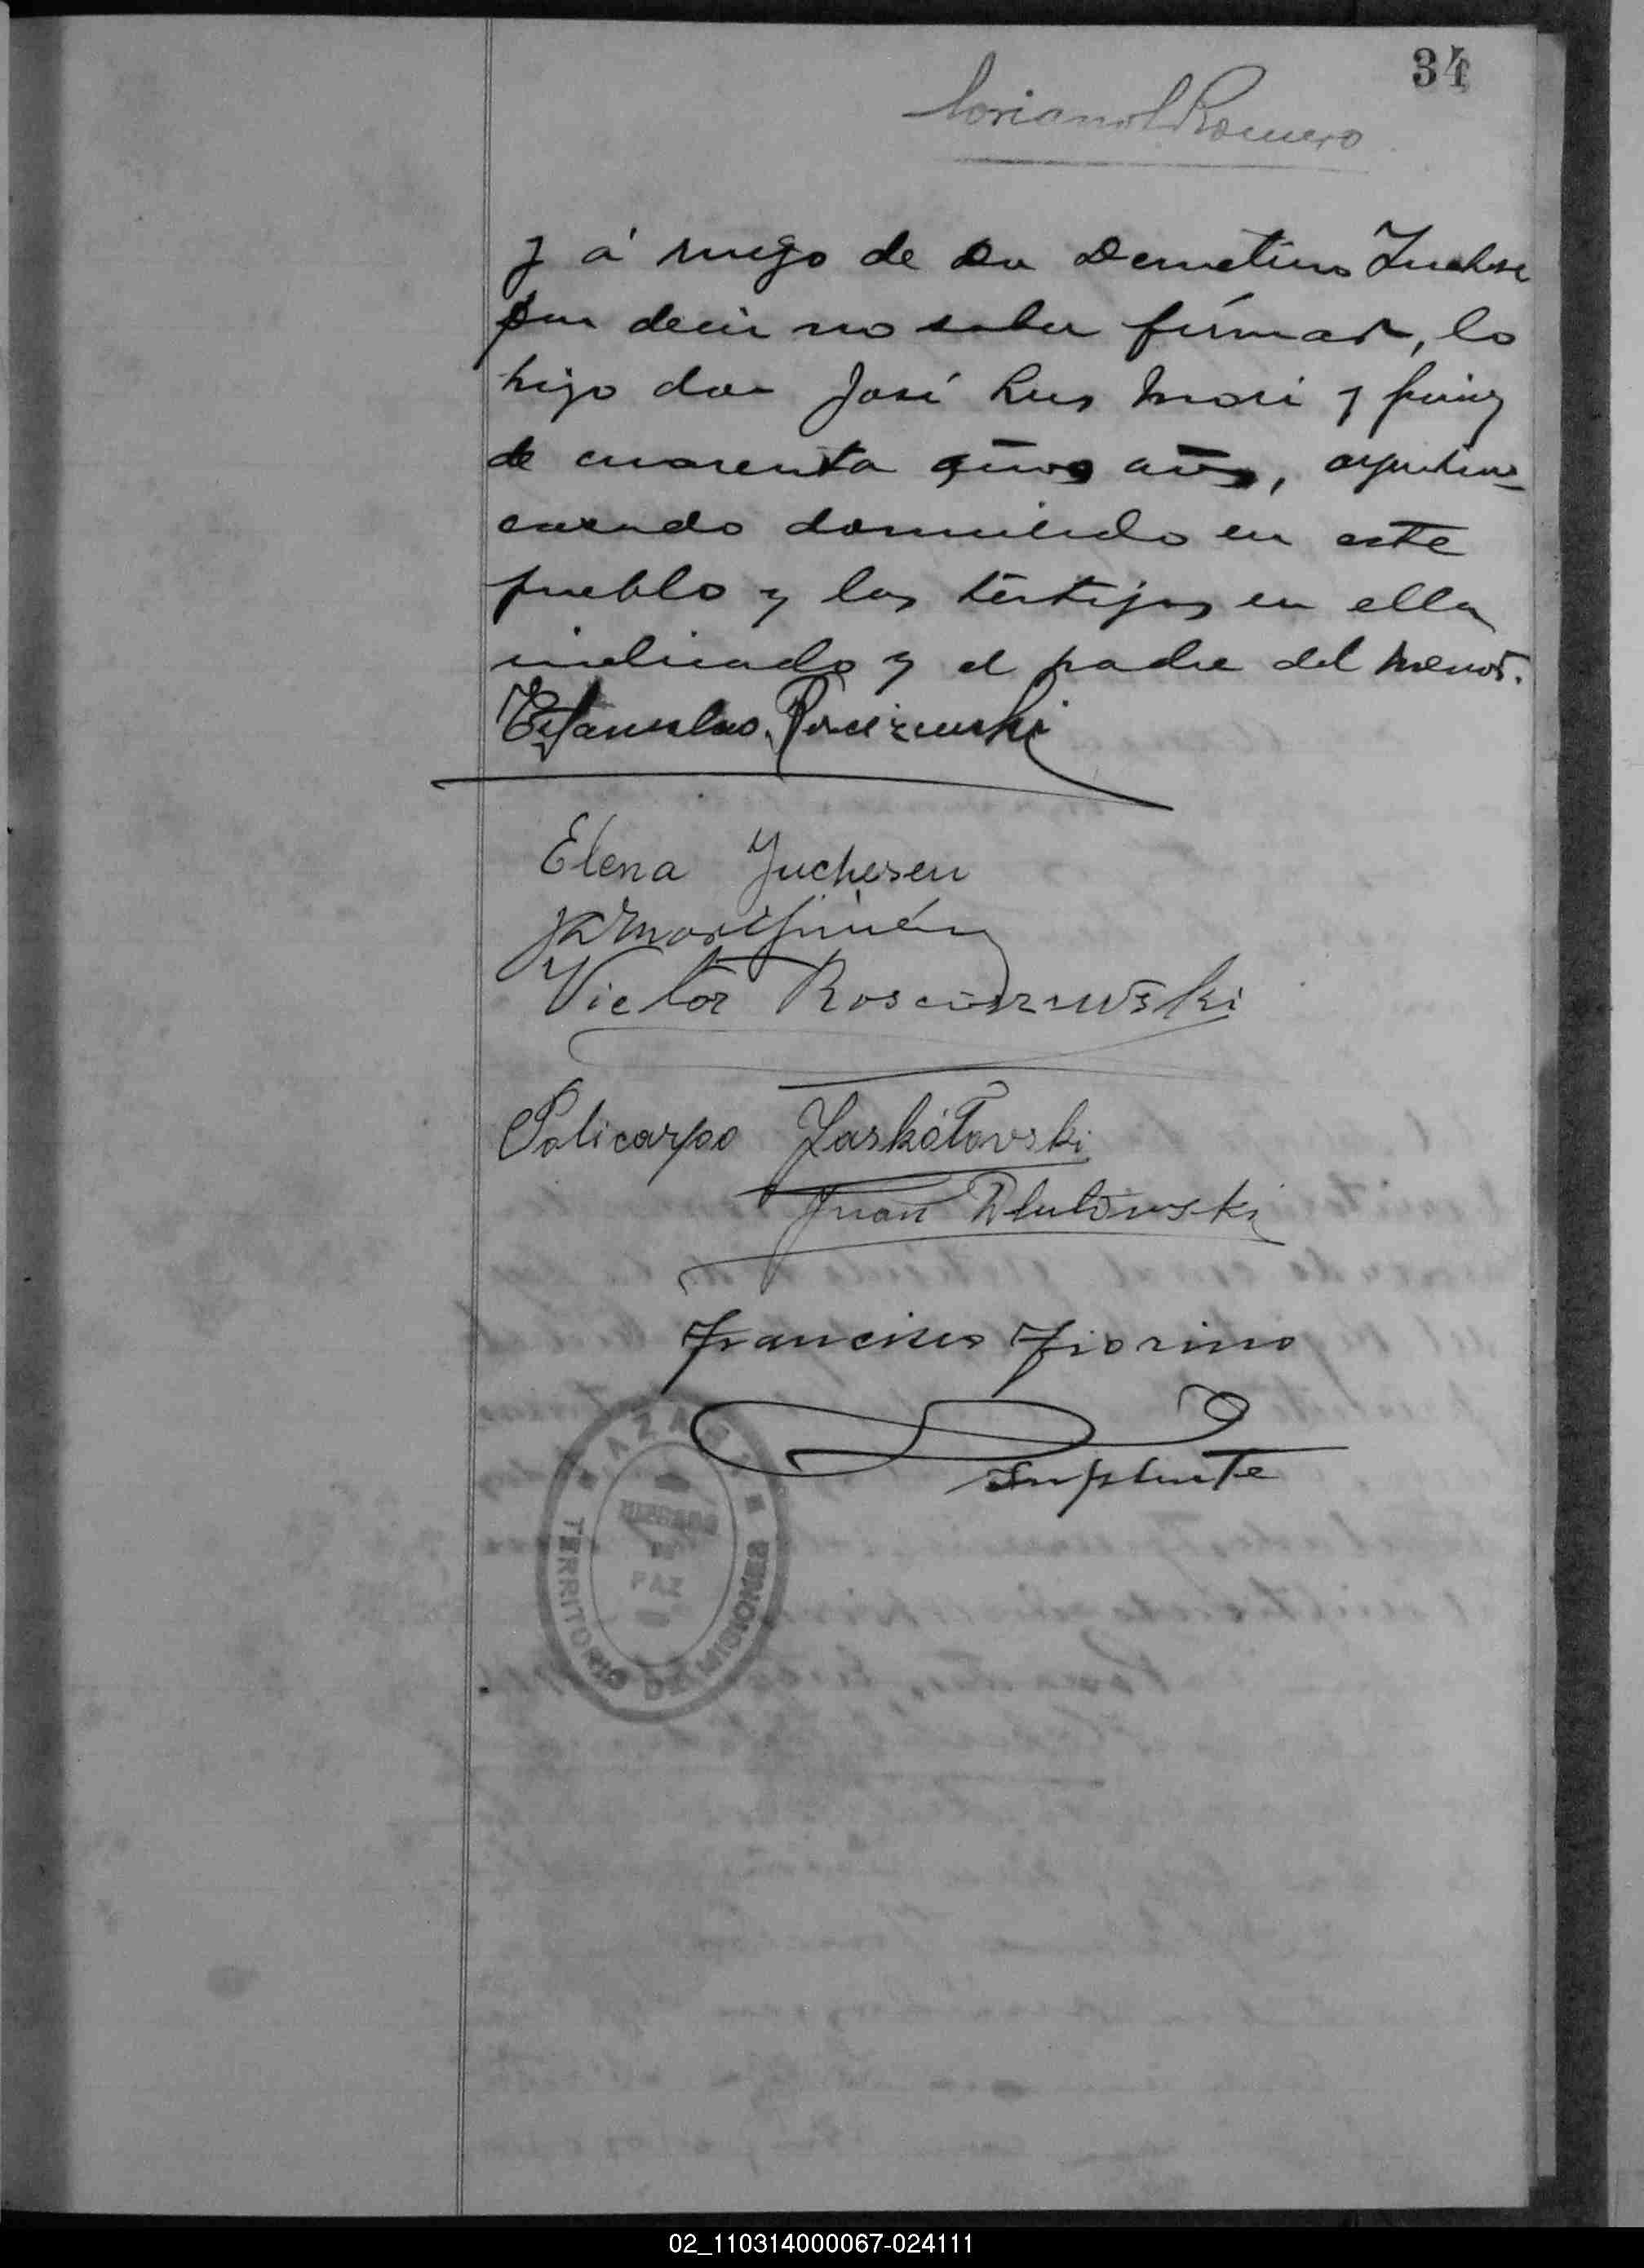 34
Romero
y á ruego de Don Demetrio
por decir no saber firmar, lo
hizo don José Luis Mori y
de cuarenta años, argentino
casado domiciliado en este
pueblo y los testigos en ella
indicado y el padre del menor.
Estanislao
Elena Juchesen
Victor Rosciszewski
Policarpo Jaskółowski
Juan
Francisco Fiorino
Suplente
AZARA
JUZGADO
DE
PAZ
TERRITORIO DE MISIONES
02_110314000067-024111